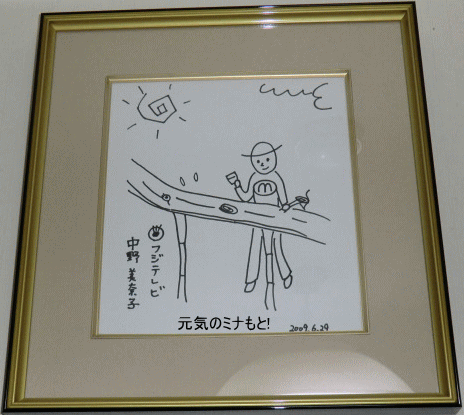 フジテレビ
中野美奈子
元気のミナもと!
2009.6.29